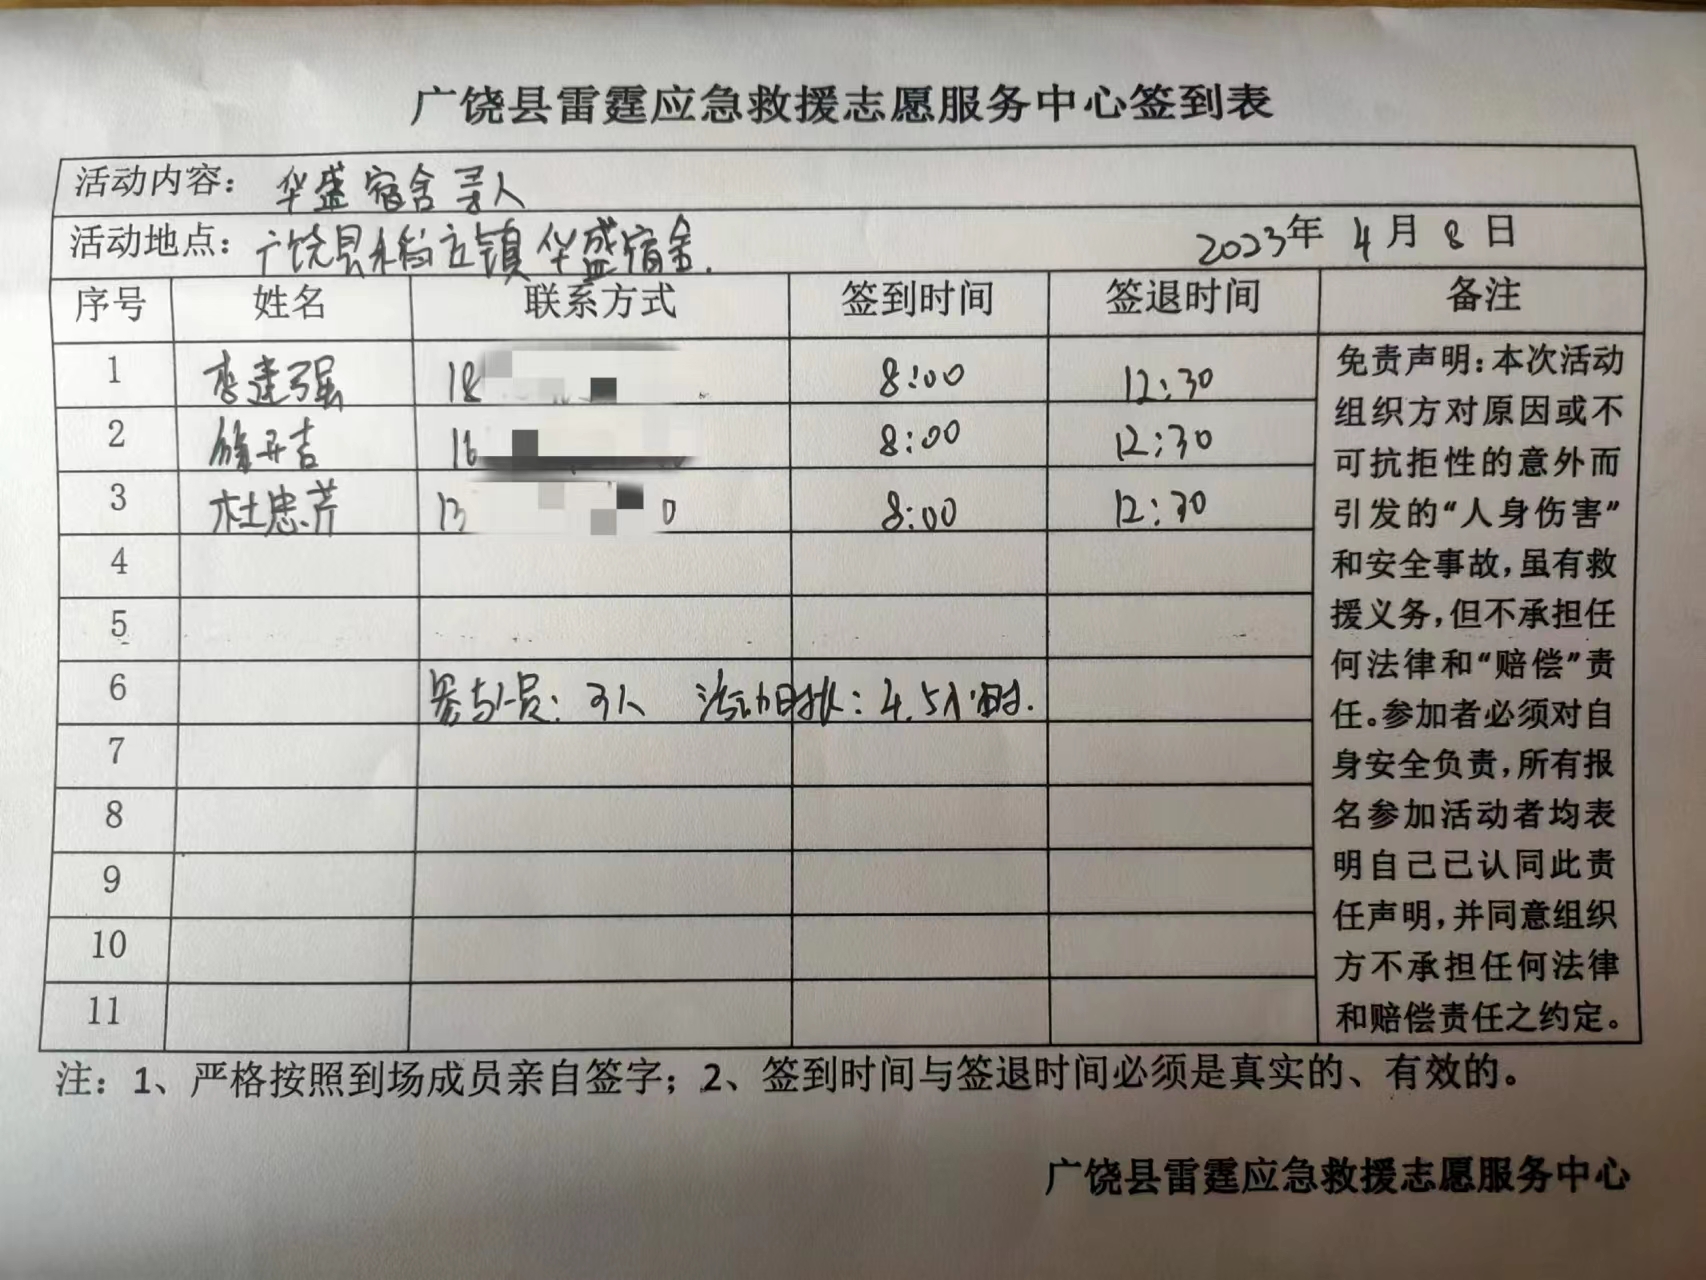 广饶县雷霆应急救援志愿服务中心签到表
活动内容: 华盛宿舍寻人
活动地点: 广饶县稻庄镇华盛宿舍. 2023年4月8日
序号 姓名 联系方式 签到时间 签退时间 备注
1 李建强 18 8:00 12:30
2 8:00 12:30
3 杜忠芹 13 0 8:00 12:30
4
5
6 参与人员: 3人 活动时长: 4.5小时.
7
8
9
10
11
免责声明:本次活动
组织方对原因或不
可抗拒性的意外而
引发的“人身伤害”
和安全事故,虽有救
援义务,但不承担任
何法律和“赔偿”责
任。参加者必须对自
身安全负责,所有报
名参加活动者均表
明自己已认同此责
任声明,并同意组织
方不承担任何法律
和赔偿责任之约定。
注: 1、严格按照到场成员亲自签字; 2、签到时间与签退时间必须是真实的、有效的。
广饶县雷霆应急救援志愿服务中心